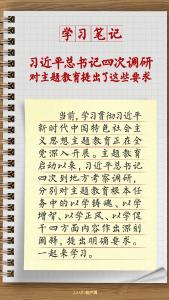 学习笔记
习近平总书记四次调研
对主题教育提出了这些要求
当前，学习贯彻习近平
新时代中国特色社会主
义思想主题教育正在全
党深入开展。主题教育
启动以来，习近平总书记
四次到地方考察调研，
分别对主题教育根本任
务中的以学铸魂、以学
增智、以学正风、以学促
干四方面内容作出深刻
阐释，提出明确要求。
一起来学习。